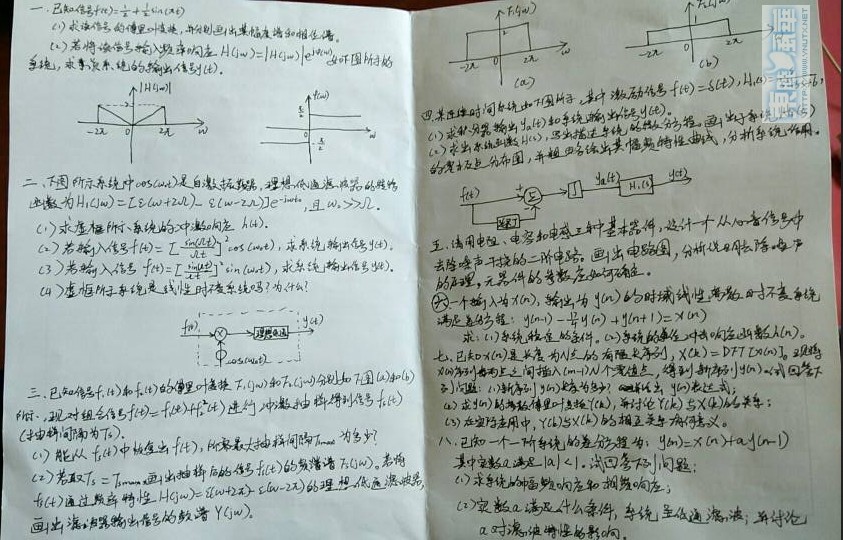 一. 已知信号f(t)=½+½sin(πt)
(1) 求该信号的傅里叶变换,并分别画出其幅度谱和相位谱。
(2) 若将该信号输入频率响应H(jω)=|H(jω)|e^{jφ(ω)} 如下图所示的
系统,求系统的输出信号y(t).
|H(jω)|
φ(ω)
-2π 0 2π ω
π/2 0 -π/2 ω
二. 下图所示系统中cos(ω₀t)是自激振荡器,理想低通滤波器的
函数为H₁(jω)=[ε(ω+2Ω)-ε(ω-2Ω)]e^{-jωt₀}, 且ω₀>>Ω.
(1) 求虚框所示系统的冲激响应h(t).
(2) 若输入信号f(t)=[sin(Ωt)/Ωt]²cos(ω₀t), 求系统输出信号y(t).
(3) 若输入信号f(t)=[sin(Ωt)/Ωt]²sin(ω₀t), 求系统输出信号y(t).
(4) 虚框所示系统是线性时不变系统吗?为什么?
f(t) × 理想低通 y(t)
cos(ω₀t)
三. 已知信号f₁(t)和f₂(t)的傅里叶变换F₁(jω)和F₂(jω)分别如下图(a)和(b)
所示,现对组合信号f(t)=f₁(t)+f₂²(t)进行冲激抽样得到信号fs(t)
(抽样间隔为Ts).
(1) 能从fs(t)中恢复出f(t),所需最大抽样间隔Tmax为多少?
(2) 若取Ts=Tsmax画出抽样后的信号fs(t)的频谱Fs(jω). 若将
fs(t)通过频率特性H(jω)=ε(ω+2π)-ε(ω-2π)的理想低通滤波器,
画出滤波器输出信号的频谱Y(jω).
F₁(jω)
2
-2π 0 2π ω
(a)
F₂(jω)
1
-2π 0 2π ω
(b)
四. 某连续时间系统如下图所示,其中激励信号f(t)=ε(t),
(1) 求积分器输出ya(t)和系统输出信号y(t).
(2) 求出系统函数H(s), 写出描述系统的微分方程. 画出
的零极点分布图,并粗略绘出其幅频特性曲线,分析系统作用.
f(t) + Σ ∫ ya(t) H₁(s) y(t)
五. 请用电阻,电容和电感三种基本器件,设计一个从
去除噪声干扰的二阶电路. 画出电路图,分析说明去除噪声
的原理. 元器件的参数应如何确定.
六 一个输入为x(n), 输出为y(n)的时域线性离散时不变系统
满足差分方程:
求: (1) 系统稳定的条件. (2) 系统的单位冲击响应函数h(n).
七. 已知x(n)是长度为N点的有限长序列, X(k)=DFT[x(n)]. 现将
x(n)序列每两点之间插入(m-1)个零值点,得到新序列y(n). 试回答下
列问题: (1) 新序列y(n)长度为多少? 给出y(n)表达式;
(2) 求y(n)的离散傅里叶变换Y(k), 并讨论Y(k)与X(k)的关系;
(3) 在实际应用中, Y(k)与X(k)的相互关系有何意义.
八. 已知一个一阶系统的差分方程为: y(n)=x(n)+ay(n-1)
其中实数a满足|a|<1. 试回答下列问题:
(1) 求系统的幅频响应和相频响应;
(2) 实数a满足什么条件,系统呈低通滤波; 并讨论
a对滤波特性的影响.